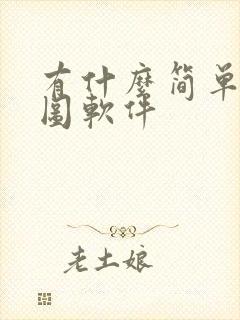 有什麼简单
圖軟件
老土娘